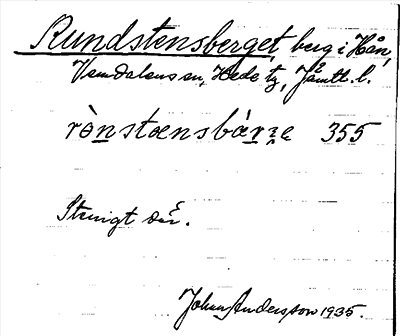 Rundstensberget, berg i Hån,
Vemdalens sn, Hede tg, Jämtl. l.
rònstænsbárze 355
Stenigt där.
Johan Andersson 1935.